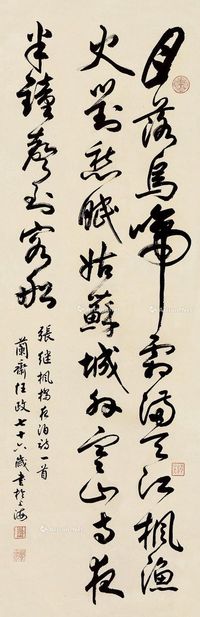 月落烏啼霜滿天江楓漁
火對愁眠姑蘇城外寒山寺夜
半鐘聲到客船
張继楓橋夜泊詩一首
蘭齋任政七十六歲書於上海